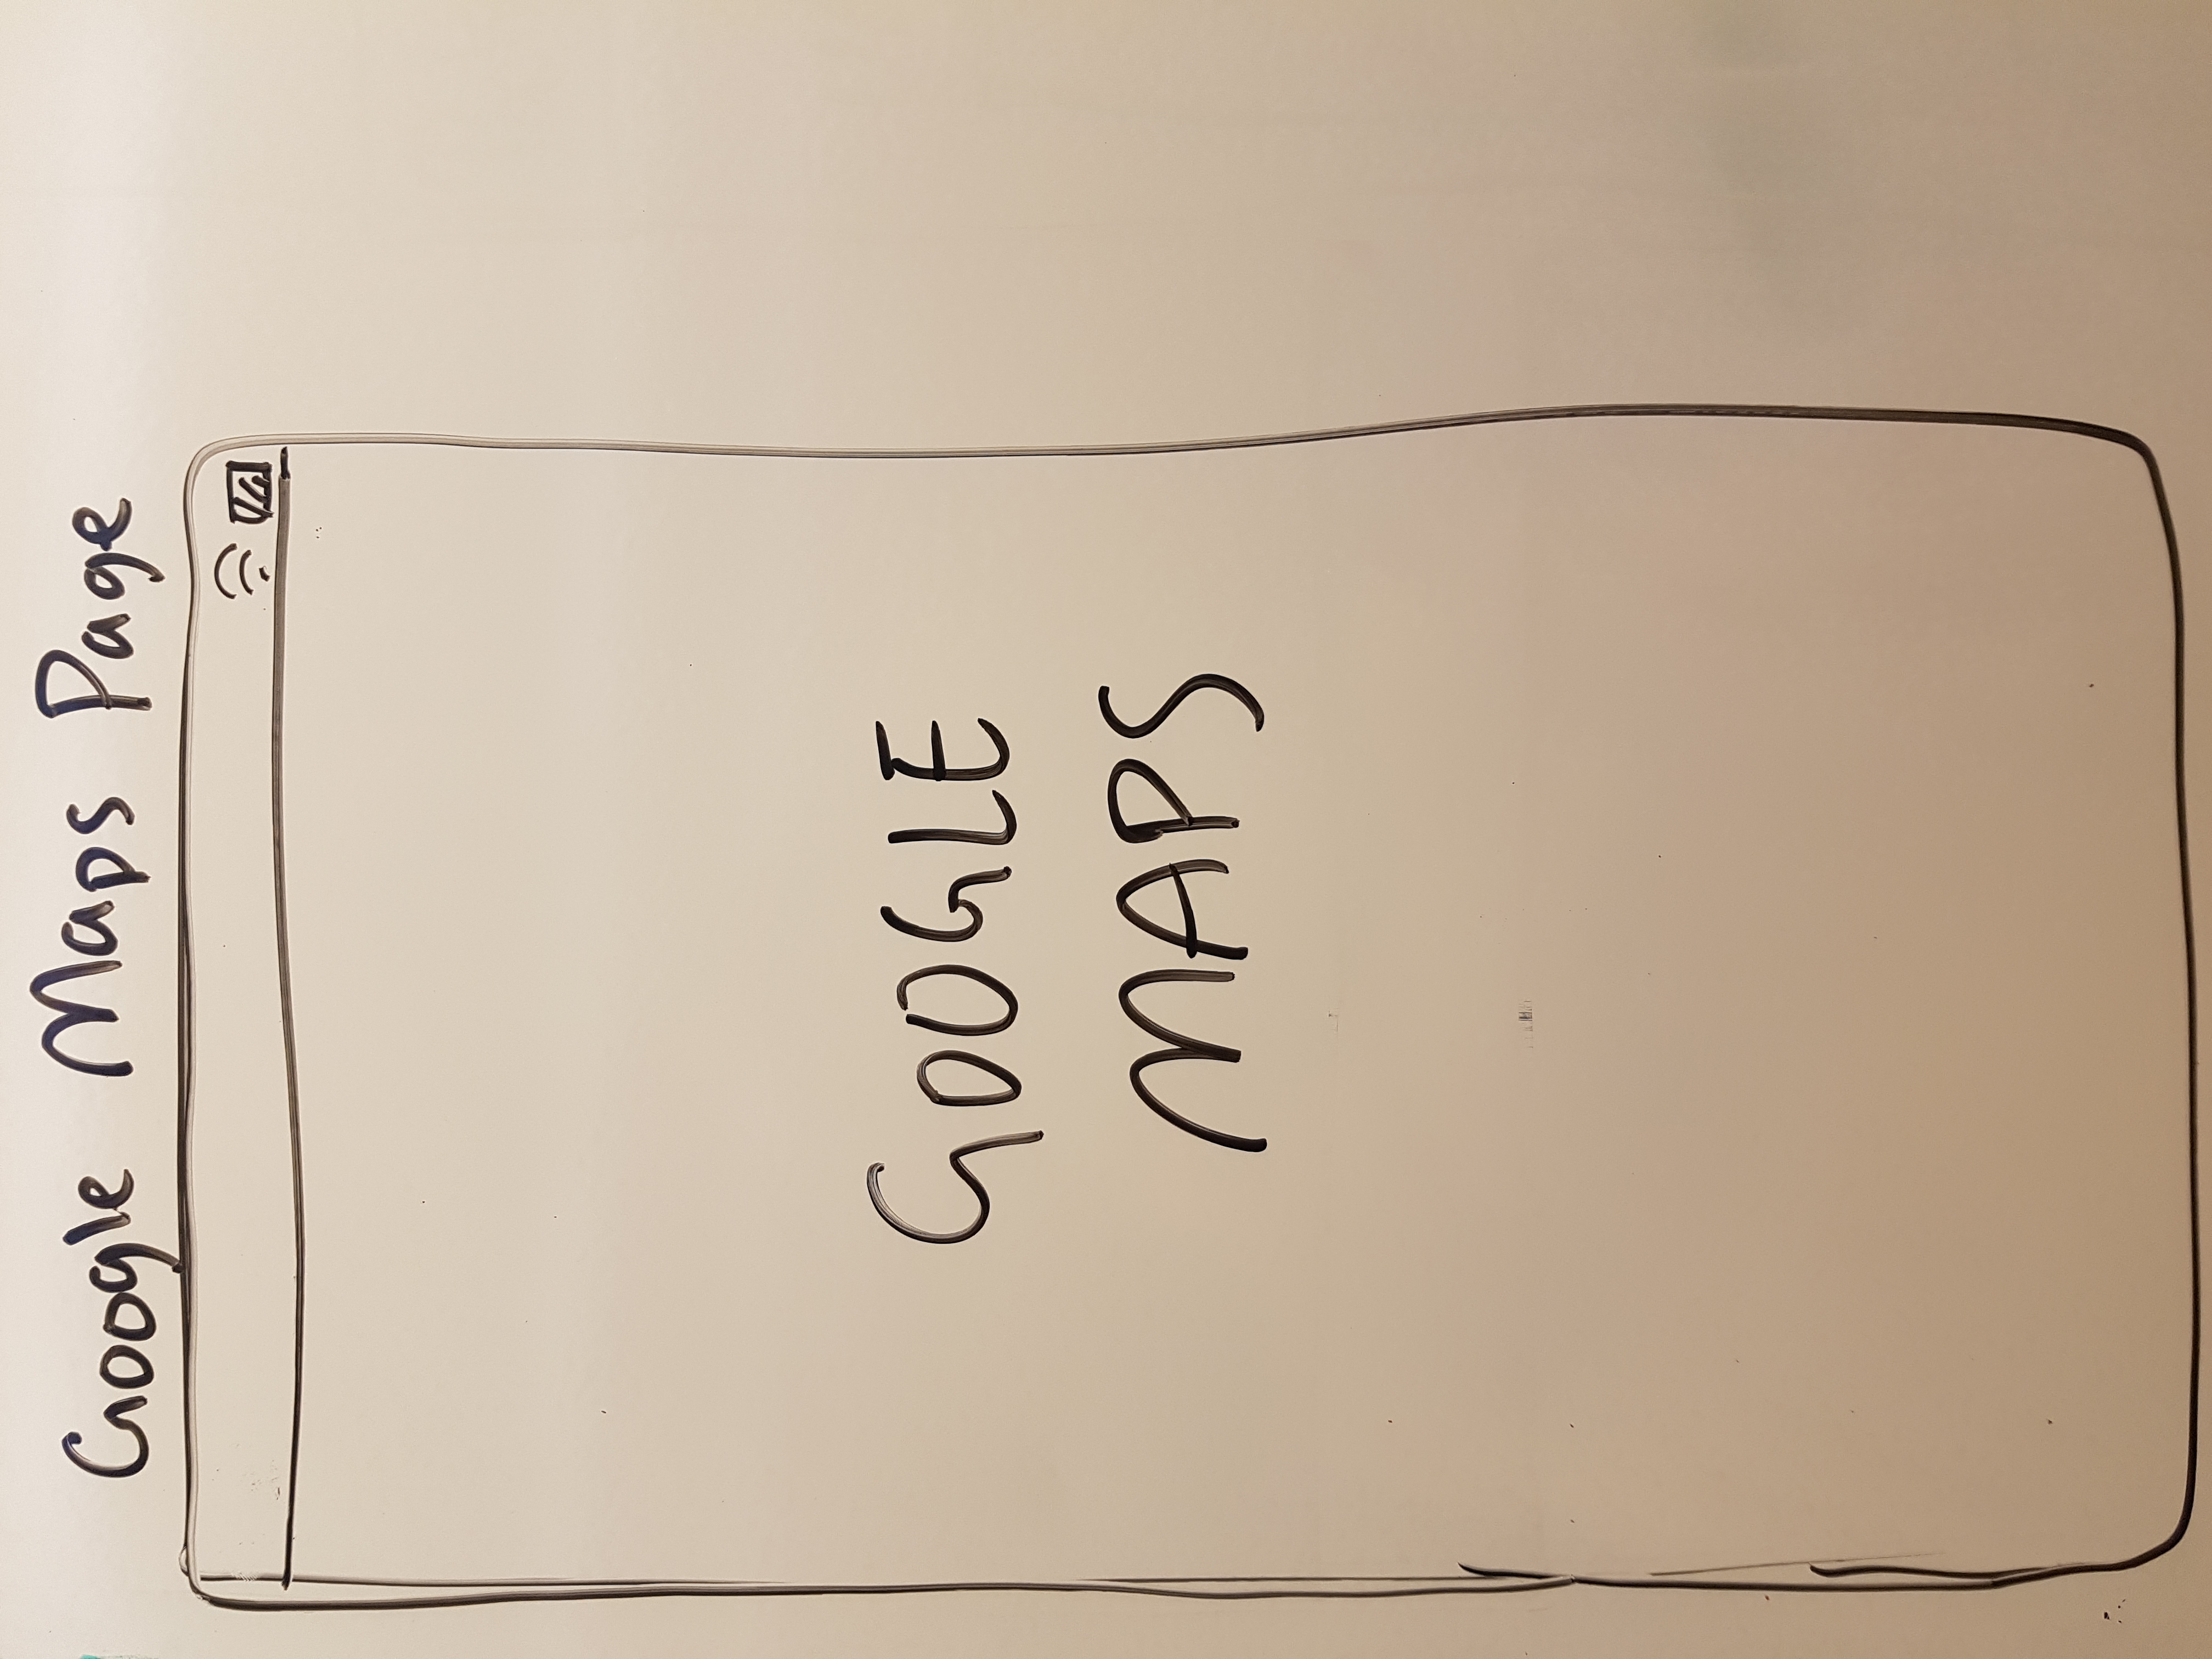 Google Maps Page
GOOGLE
MAPS